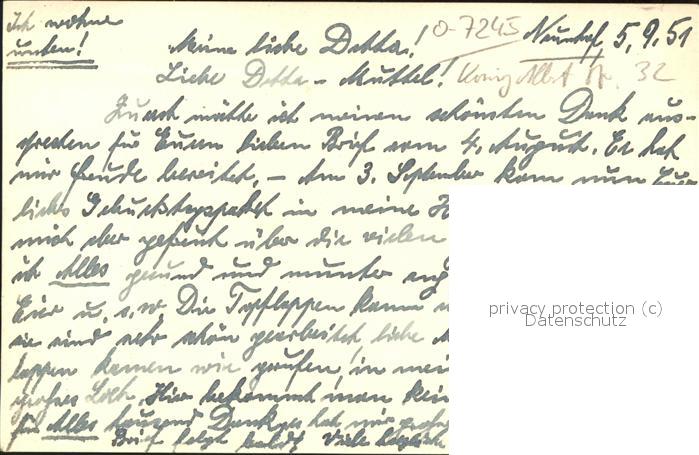 Ich wohne
unten!
Neuhof, 5.9.51
O-7245
Meine liebe Detta!
Liebe Detta-Muttel!
König Albert Str. 32
Zuerst möchte ich meinen schönsten Dank aus-
sprechen für Euern lieben Brief vom 4. August. Er hat
mir Freude bereitet, – Am 3. September kam nun Euer
liebes Geburtstagspaket in meine H
mich aber gefreut über die vielen
ist Alles gesund und munter
Eier u. s. w. Die Topflappen kann
sie sind sehr schön gearbeitet, liebe
lappen kamen wie gerufen, in mei
großes Loch. Hier bekommt man kein
für Alles tausend Dank, es hat mir große
Brief folgt bald! Viele herzliche
privacy protection (c)
Datenschutz